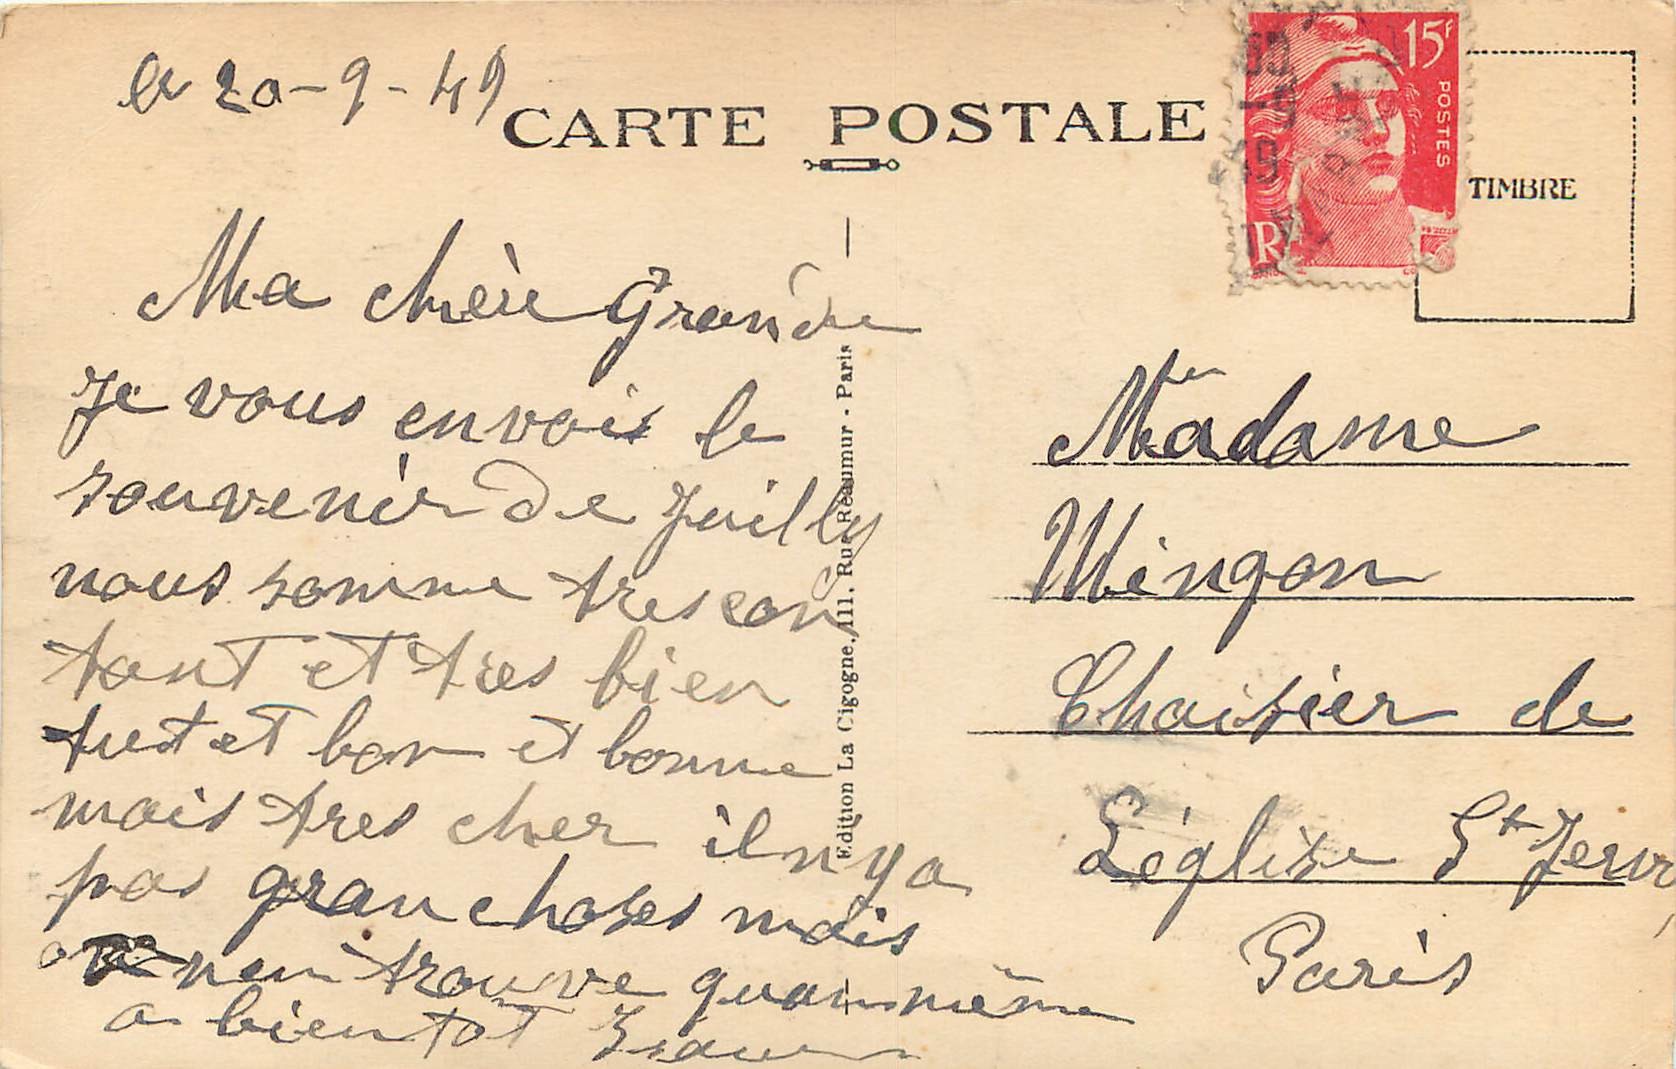 le 20-9-49
CARTE POSTALE
15F
POSTES
RF
TIMBRE
Ma chère Grande
Je vous envois le
souvenir de Juilly
nous somme tres con
tant et tres bien
tut et bon et bonne
mais tres cher il ny a
pas gran choses mais
on nen trouve quan même
a bientot
Edition La Cigogne, 111, Rue Réaumur - Paris
Madame
Mingon
Chaisier de
Léglise St Jerv
Paris